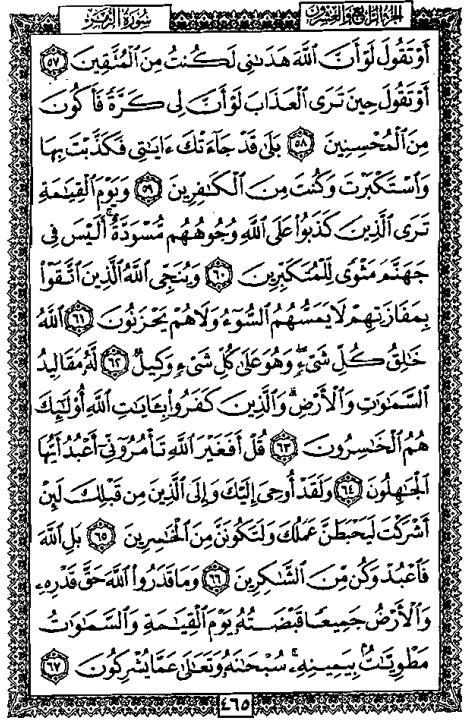 الجزء الرابع والعشرون سورة الزمر
أَوْ تَقُولَ لَوْ أَنَّ ٱللَّهَ هَدَىٰنِى لَكُنتُ مِنَ ٱلْمُتَّقِينَ ٥٧
أَوْ تَقُولَ حِينَ تَرَى ٱلْعَذَابَ لَوْ أَنَّ لِى كَرَّةً فَأَكُونَ
مِنَ ٱلْمُحْسِنِينَ ٥٨ بَلَىٰ قَدْ جَآءَتْكَ ءَايَـٰتِى فَكَذَّبْتَ بِهَا
وَٱسْتَكْبَرْتَ وَكُنتَ مِنَ ٱلْكَـٰفِرِينَ ٥٩ وَيَوْمَ ٱلْقِيَـٰمَةِ
تَرَى ٱلَّذِينَ كَذَبُوا۟ عَلَى ٱللَّهِ وُجُوهُهُم مُّسْوَدَّةٌ ۚ أَلَيْسَ فِى
جَهَنَّمَ مَثْوًى لِّلْمُتَكَبِّرِينَ ٦٠ وَيُنَجِّى ٱللَّهُ ٱلَّذِينَ ٱتَّقَوْا۟
بِمَفَازَتِهِمْ لَا يَمَسُّهُمُ ٱلسُّوٓءُ وَلَا هُمْ يَحْزَنُونَ ٦١ ٱللَّهُ
خَـٰلِقُ كُلِّ شَىْءٍ ۖ وَهُوَ عَلَىٰ كُلِّ شَىْءٍ وَكِيلٌ ٦٢ لَّهُۥ مَقَالِيدُ
ٱلسَّمَـٰوَٰتِ وَٱلْأَرْضِ ۗ وَٱلَّذِينَ كَفَرُوا۟ بِـَٔايَـٰتِ ٱللَّهِ أُو۟لَـٰٓئِكَ
هُمُ ٱلْخَـٰسِرُونَ ٦٣ قُلْ أَفَغَيْرَ ٱللَّهِ تَأْمُرُوٓنِّىٓ أَعْبُدُ أَيُّهَا
ٱلْجَـٰهِلُونَ ٦٤ وَلَقَدْ أُوحِىَ إِلَيْكَ وَإِلَى ٱلَّذِينَ مِن قَبْلِكَ لَئِنْ
أَشْرَكْتَ لَيَحْبَطَنَّ عَمَلُكَ وَلَتَكُونَنَّ مِنَ ٱلْخَـٰسِرِينَ ٦٥ بَلِ ٱللَّهَ
فَٱعْبُدْ وَكُن مِّنَ ٱلشَّـٰكِرِينَ ٦٦ وَمَا قَدَرُوا۟ ٱللَّهَ حَقَّ قَدْرِهِۦ
وَٱلْأَرْضُ جَمِيعًا قَبْضَتُهُۥ يَوْمَ ٱلْقِيَـٰمَةِ وَٱلسَّمَـٰوَٰتُ
مَطْوِيَّـٰتٌۢ بِيَمِينِهِۦ ۚ سُبْحَـٰنَهُۥ وَتَعَـٰلَىٰ عَمَّا يُشْرِكُونَ ٦٧
٤٦٥